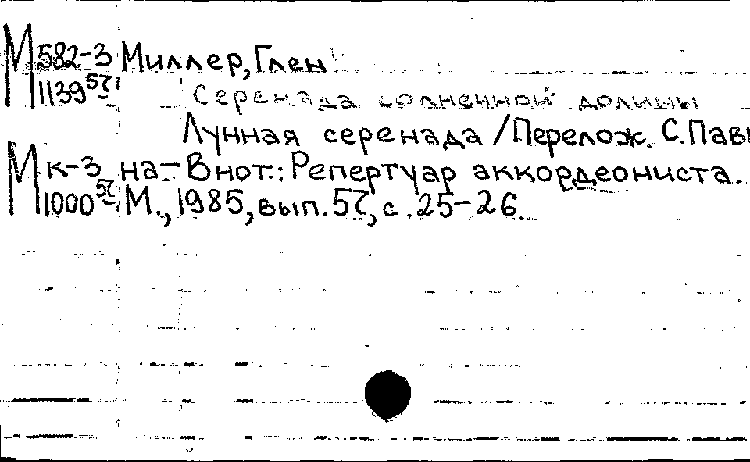 М 582-3 Миллер, Глен
1139 57 Серенада солнечной долины
Лунная серенада / Перелож. С. Пав
М к-3 на – В нот.: Репертуар аккордеониста.
1000 57 М., 1985, вып. 57, с. 25-26.